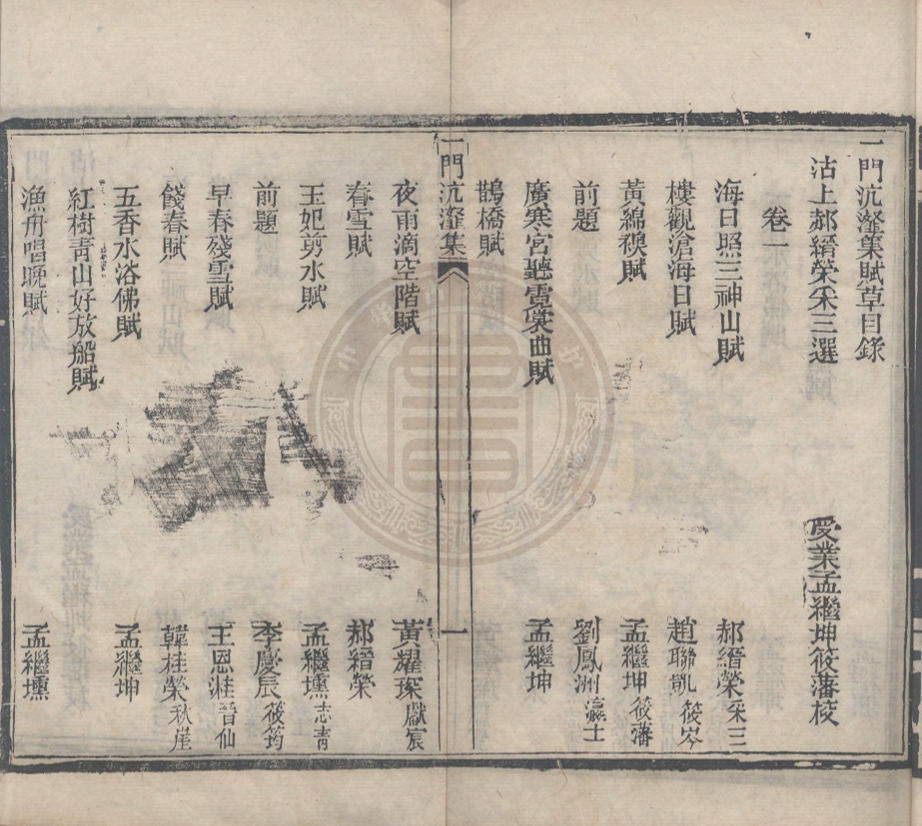 一門沆瀣集賦草目錄
沽上郝縉榮采三選 受業孟繼坤筱藩校
卷一
海日照三神山賦 郝縉榮采三
樓觀滄海日賦 趙聯凱筱岑
黃綿襖賦 孟繼坤筱藩
前題 劉鳳洲瀛士
廣寒宮聽霓裳曲賦 孟繼坤
鵲橋賦
一門沆瀣集 一
夜雨滴空階賦 黃耀琛獻宸
春雪賦 郝縉榮
玉妃剪水賦 孟繼壎志青
前題 李慶辰筱筠
早春殘雪賦 王恩湛晉仙
餞春賦 韓桂榮秋崖
五香水浴佛賦 孟繼坤
紅樹青山好放船賦
漁舟唱晚賦 孟繼壎